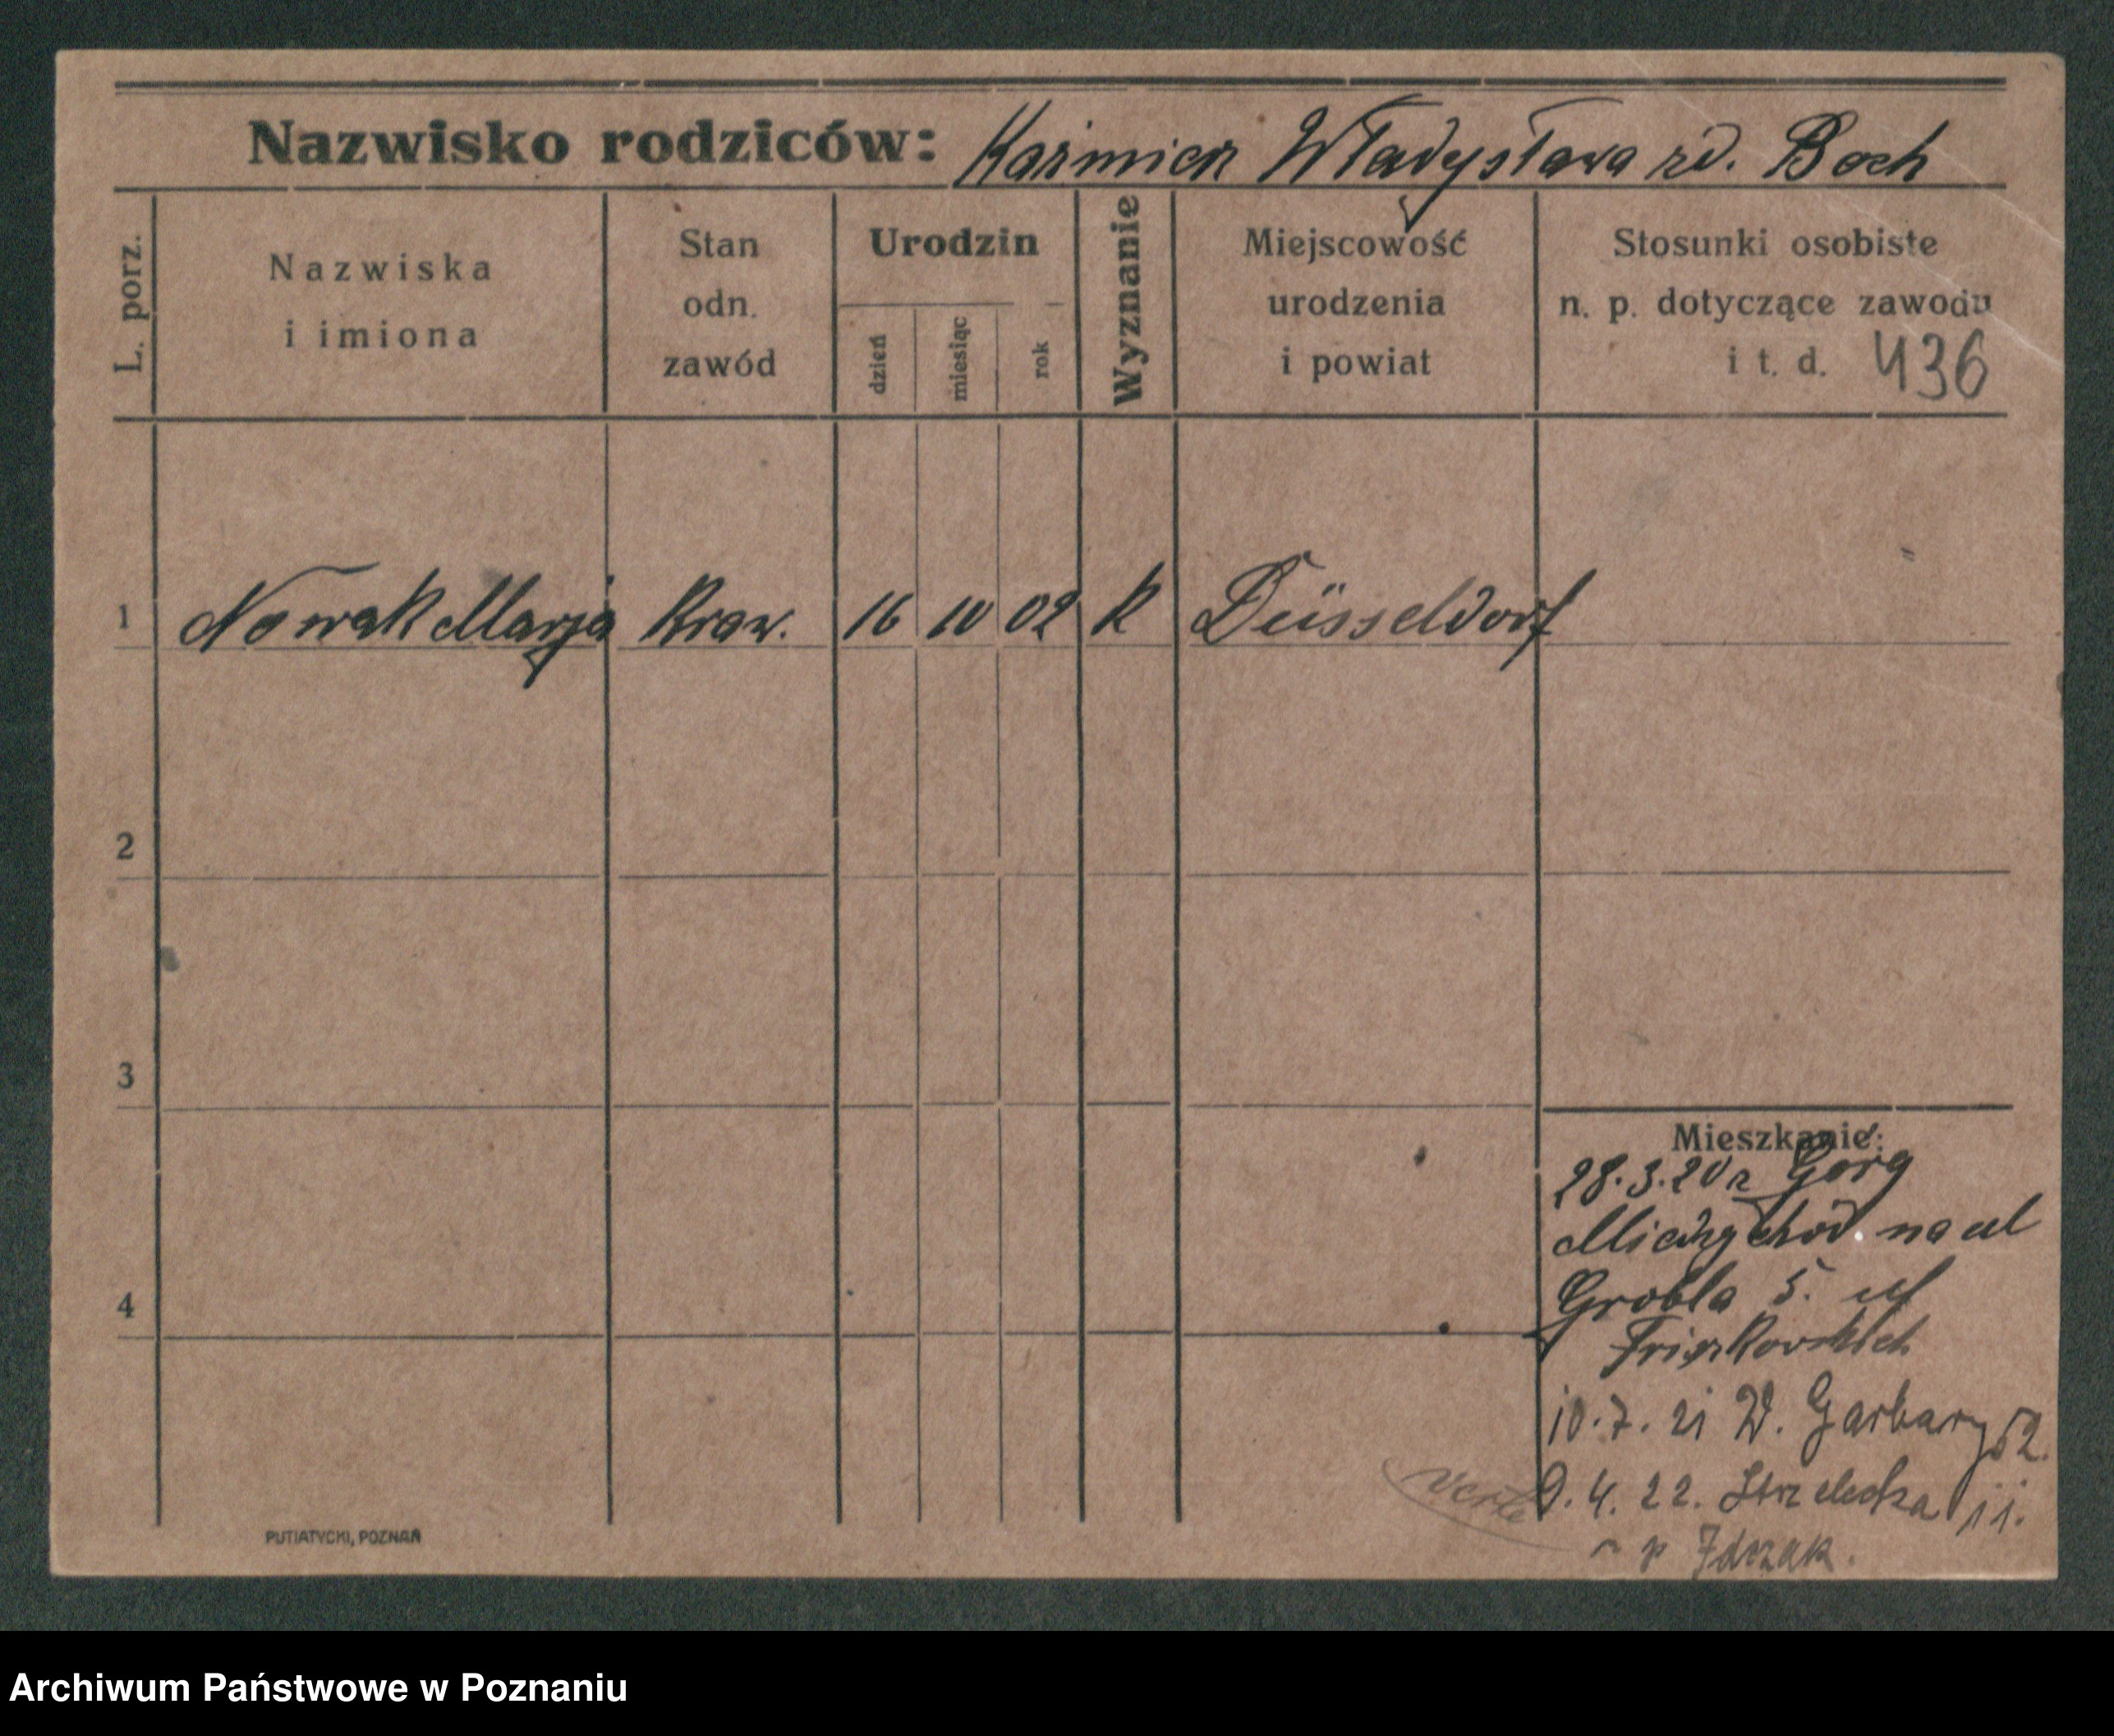 Nazwisko rodziców: Kaźmierz Władysława rd. Boch
L. porz.
Nazwiska
i imiona
Stan
odn.
zawód
Urodzin
dzień
miesiąc
rok
Wyznanie
Miejscowość
urodzenia
i powiat
Stosunki osobiste
n. p. dotyczące zawodu
i t. d. 436
1 Nowak Marja Kraw. 16 10 02 K Düsseldorf
2
3
4
Mieszkanie:
28.3.20 z Gorg
Międzychód. na ul
Grobla 5.
10.7.21 W. Garbary 52.
verte
9.4.22. Strzelecka 11.
p Idczak.
PUTIATYCKI, POZNAŃ
Archiwum Państwowe w Poznaniu